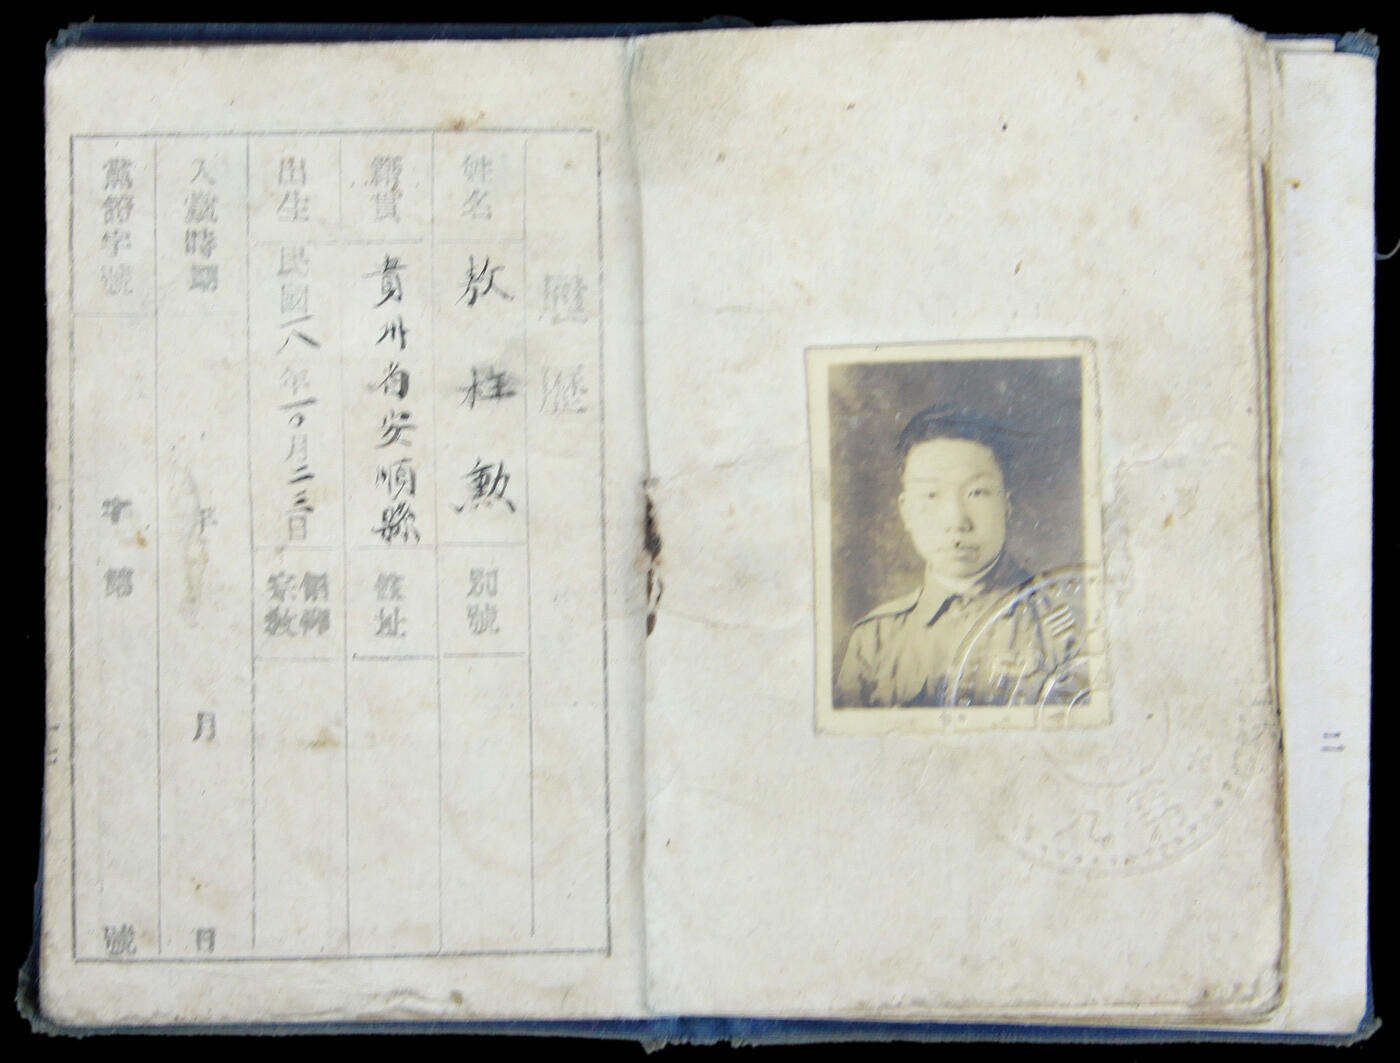 履歷
姓名 敖柱勳 別號
籍貫 貴州省安順縣 住址
出生 民國八年一〇月二三日 信仰宗教
入黨時期 年 月 日
黨證字號 字第 號
二